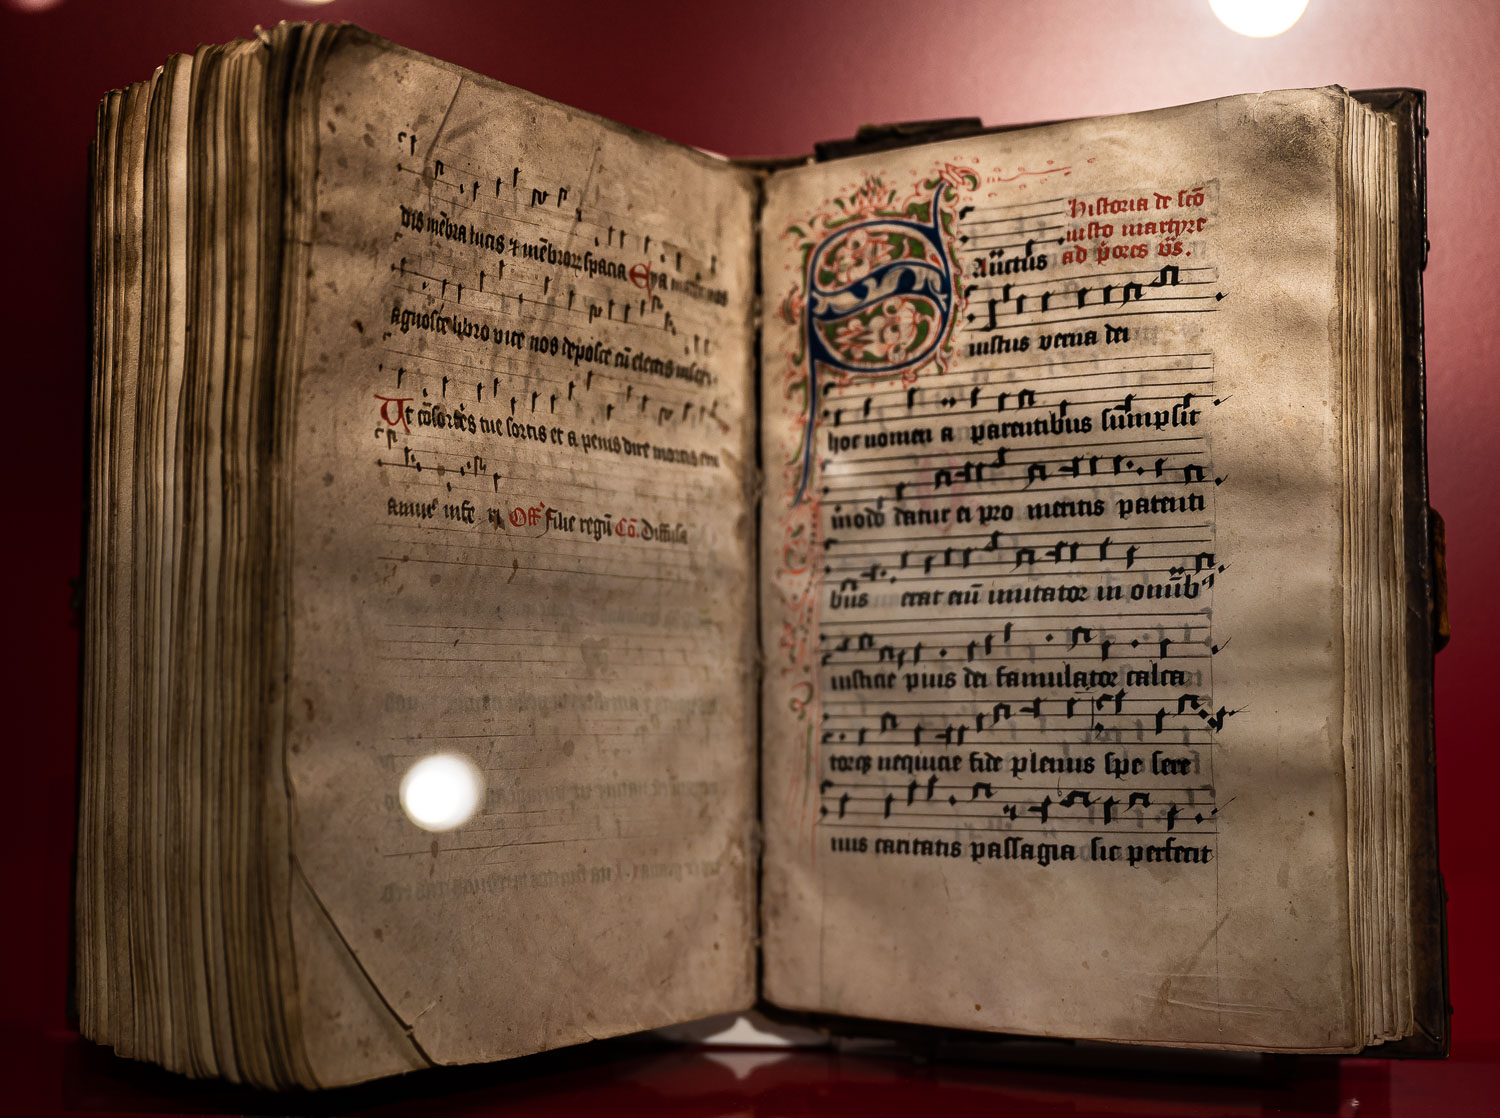 dis mēbra lucis ⁊ mēbroꝝ spacia Eya nos
agnosce libro vite nos deposce cū electis
Ut cōsortes tue sortis et a penis dire mortis
Off Filie regū Cō. Diffusa
historia de scō
iusto martyre
Auctus ad p̄ores v̄s.
iustus verna dei
hoc nomen a parentibus sūmpsit
modo datur ei pro meritis patenti
bus erat enī imitator in omnib9
iusticie pius dei famulator calca
torqꝫ nequicie fide plenus spe sere
nus caritatis passagia sic perfecit